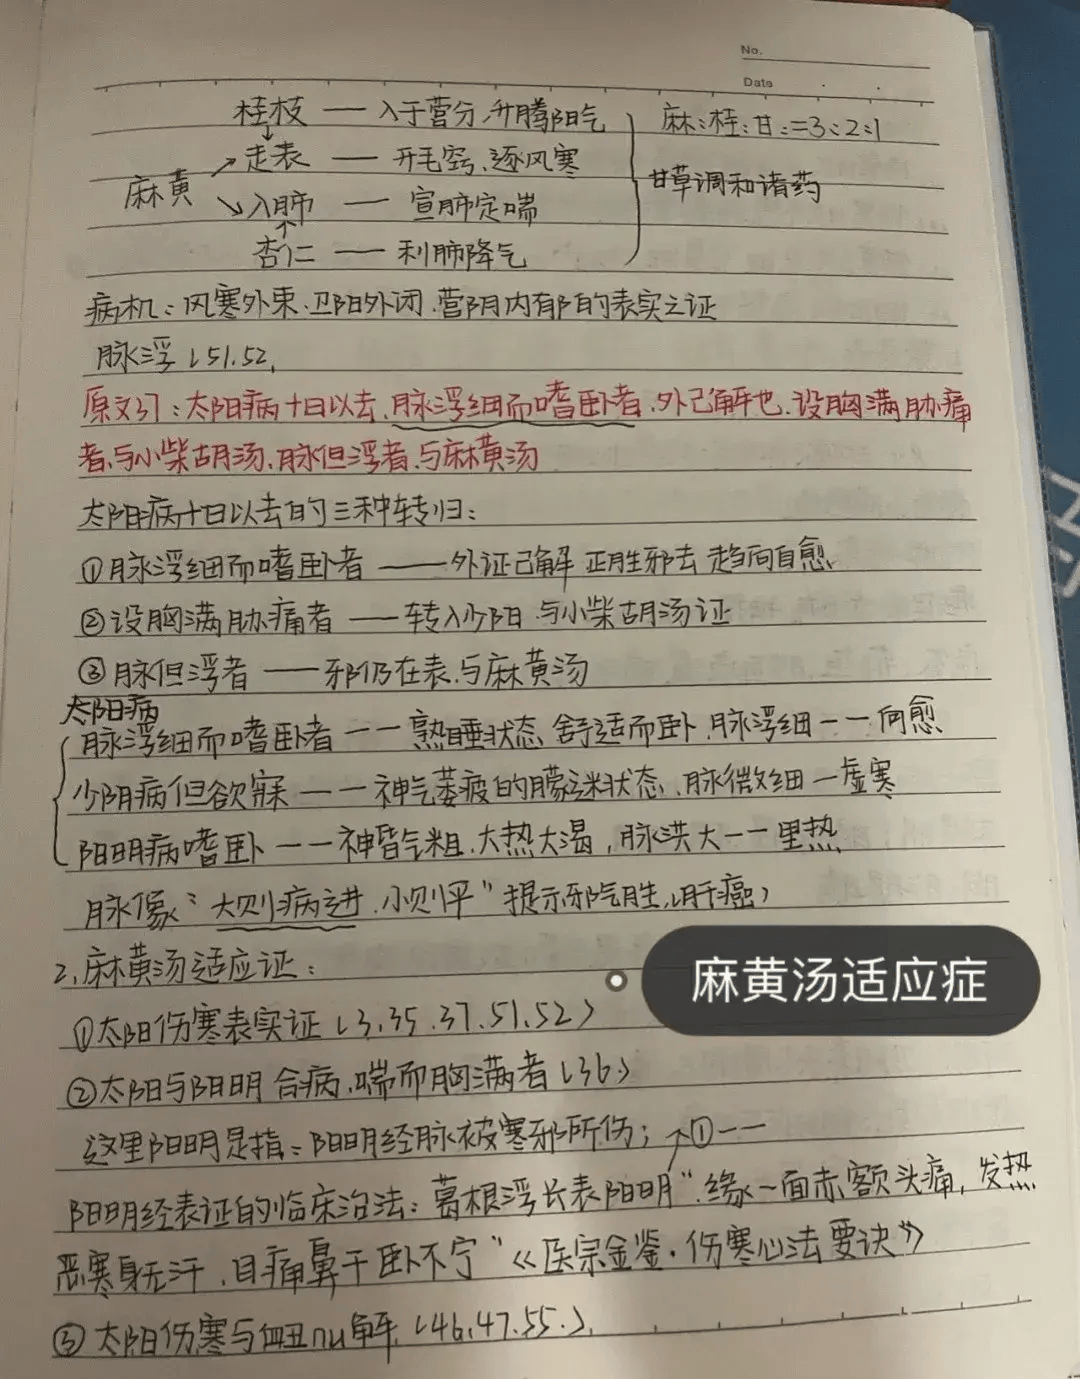 No.
Date
桂枝 — 入于营分,升腾阳气
麻:桂:甘:=3:2:1
走表 — 开毛窍、逐风寒
麻黄
甘草调和诸药
入肺 — 宣肺定喘
杏仁 — 利肺降气
病机:风寒外束、卫阳外闭、营阴内郁的表实之证
脉浮(51.52.
原文37:太阳病十日以去,脉浮细而嗜卧者,外已解也、设胸满胁痛
者,与小柴胡汤、脉但浮者、与麻黄汤
太阳病十日以去的三种转归:
①脉浮细而嗜卧者 —— 外证已解 正胜邪去 趋向自愈
②设胸满胁痛者 —— 转入少阳 与小柴胡汤证
③脉但浮者 —— 邪仍在表、与麻黄汤
太阳病
脉浮细而嗜卧者 —— 熟睡状态 舒适而卧、脉浮细 —— 向愈
少阴病但欲寐 —— 神气萎疲的朦迷状态、脉微细 — 虚寒
阳明病嗜卧 —— 神昏气粗、大热大渴,脉洪大 —— 里热
脉象“大则病进、小则平”提示邪气胜,(肝癌)
2、麻黄汤适应证:
麻黄汤适应症
①太阳伤寒表实证(3.35.37.51.52)
②太阳与阳明合病、喘而胸满者(36)
这里阳明是指:阳明经脉被寒邪所伤; ↗①——
阳明经表证的临床治法:葛根浮长表阳明“缘缘一面赤额头痛,发热
恶寒身无汗,目痛鼻干卧不宁”《医宗金鉴·伤寒心法要诀》
③太阳伤寒与衄nu解(46.47.55.).